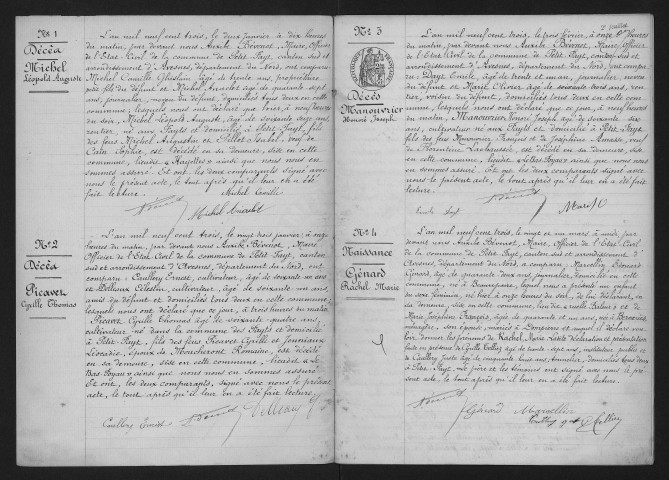 No 1
Décès
Michel
Léopold Auguste
L'an mil neuf cent trois, le deux janvier à dix heures
du matin, par devant nous Auxile Bévenot, Maire, Officier
de l'Etat Civil de la commune de Petit-Fayt, canton sud et
arrondissement d'Avesnes, département du Nord, ont comparu
Michel Camille Ghislain âgé de trente ans, propriétaire
fils du défunt et Michel Anaclet âgé de quarante sept
ans, journalier, neveu du défunt, domiciliés tous deux en cette
commune; lesquels nous ont déclaré que hier, à neuf heures
du soir, Michel Léopold Auguste, âgé de soixante seize ans,
rentier, né au Fayt et domicilié à Petit Fayt, fils
des feus Michel Augustin et Gillot Isabel, veuf de
Sophie, est décédé en sa demeure, sise en cette
commune, lieudit « Hayettes » ainsi que nous nous en
sommes assuré. Et ont les deux comparants signé avec
nous le présent acte, le tout après qu'il leur en a été
fait lecture.
Michel Camille
Michel Anaclet
No 2
Décès
Picavez
Cyrille Thomas
L'an mil neuf cent trois, le vingt trois janvier, à onze
heures du matin, par devant nous Auxile Bévenot, Maire
Officier de l'Etat Civil de la commune de Petit-Fayt, canton
sud et arrondissement d'Avesnes, département du Nord, ont
comparu: Caullery Ernest, cultivateur, âgé de soixante un ans
et Célestin, cultivateur, âgé de soixante un ans,
amis du défunt et domiciliés tous deux en cette commune
lesquels nous ont déclaré que ce jour, à trois heures du matin,
Picavez Cyrille Thomas âgé de soixante quatre ans,
cultivateur né dans la commune des Fayts et domicilié
à Petit-Fayt, fils des feus Picavez Cyrille et Jouniaux
Léocadie, époux de Romaine, est décédé
en sa demeure, sise en cette commune, lieudit « Le
Bas-Foyau » ainsi que nous nous en sommes assuré
Et ont, les deux comparants, signé avec nous le présent
acte, le tout après qu'il leur en a été fait lecture.
Caullery Ernest
No 3
Décès
Manouvrier
Honoré Joseph
L'an mil neuf cent trois, le trois février, à onze heures
du matin, par devant nous Auxile Bévenot, Maire, Officier
de l'Etat Civil de la commune de Petit Fayt, canton sud et
arrondissement d'Avesnes, département du Nord, ont compa-
ru: Dayt Emile, âgé de trente et un ans, journalier, neveu
du défunt, et Olivier, âgé de soixante trois ans, ren-
tier, voisin du défunt, domiciliés tous deux en cette com-
mune, lesquels nous ont déclaré que ce jour, à neuf heures
du matin, Manouvrier Honoré Joseph âgé de soixante six
ans, cultivateur né aux Fayts et domicilié à Petit-Fayt,
fils des feus Manouvrier François et de Joséphine Amada, veuf
de Florentine Lachaussée, est décédé en sa demeure, sise en
cette commune, lieudit « Foyaux » ainsi que nous nous
en sommes assuré. Et ont les deux comparants signé avec
nous le présent acte, le tout après qu'il leur en a été fait
lecture.
Emile Dayt
No 4
Naissance
Gérard
Rachel Marie
L'an mil neuf cent trois, le vingt et un mars à midi, par
devant nous Auxile Bévenot, Maire, Officier de l'Etat Civil
de la commune de Petit Fayt, canton sud et arrondissement d'
Avesnes, département du Nord, a comparu: Marcellin Edouard
Gérard, âgé de quarante deux ans, journalier, domicilié en cette
commune, né à Beaurepaire, lequel nous a présenté un enfant
du sexe féminin, né hier à onze heures du soir, de lui déclarant, en
sa demeure, sise en cette commune, lieudit et de
Marie Joséphine François, âgée de quarante et un ans, née à
ménagère, son épouse, mariés à Dompierre et auquel il déclare vou-
loir donner les prénoms de Rachel, Marie. Ladite déclaration et présentation
faite en présence de Cyrille Tellier âgé de trente sept ans, instituteur public et
de Caullery Juste âgé de cinquante trois ans, journalier, domiciliés tous deux
à Petit-Fayt. Le père et les témoins ont signé avec nous le pré-
sent acte, le tout après qu'il leur en a été fait lecture.
Gérard Marcellin